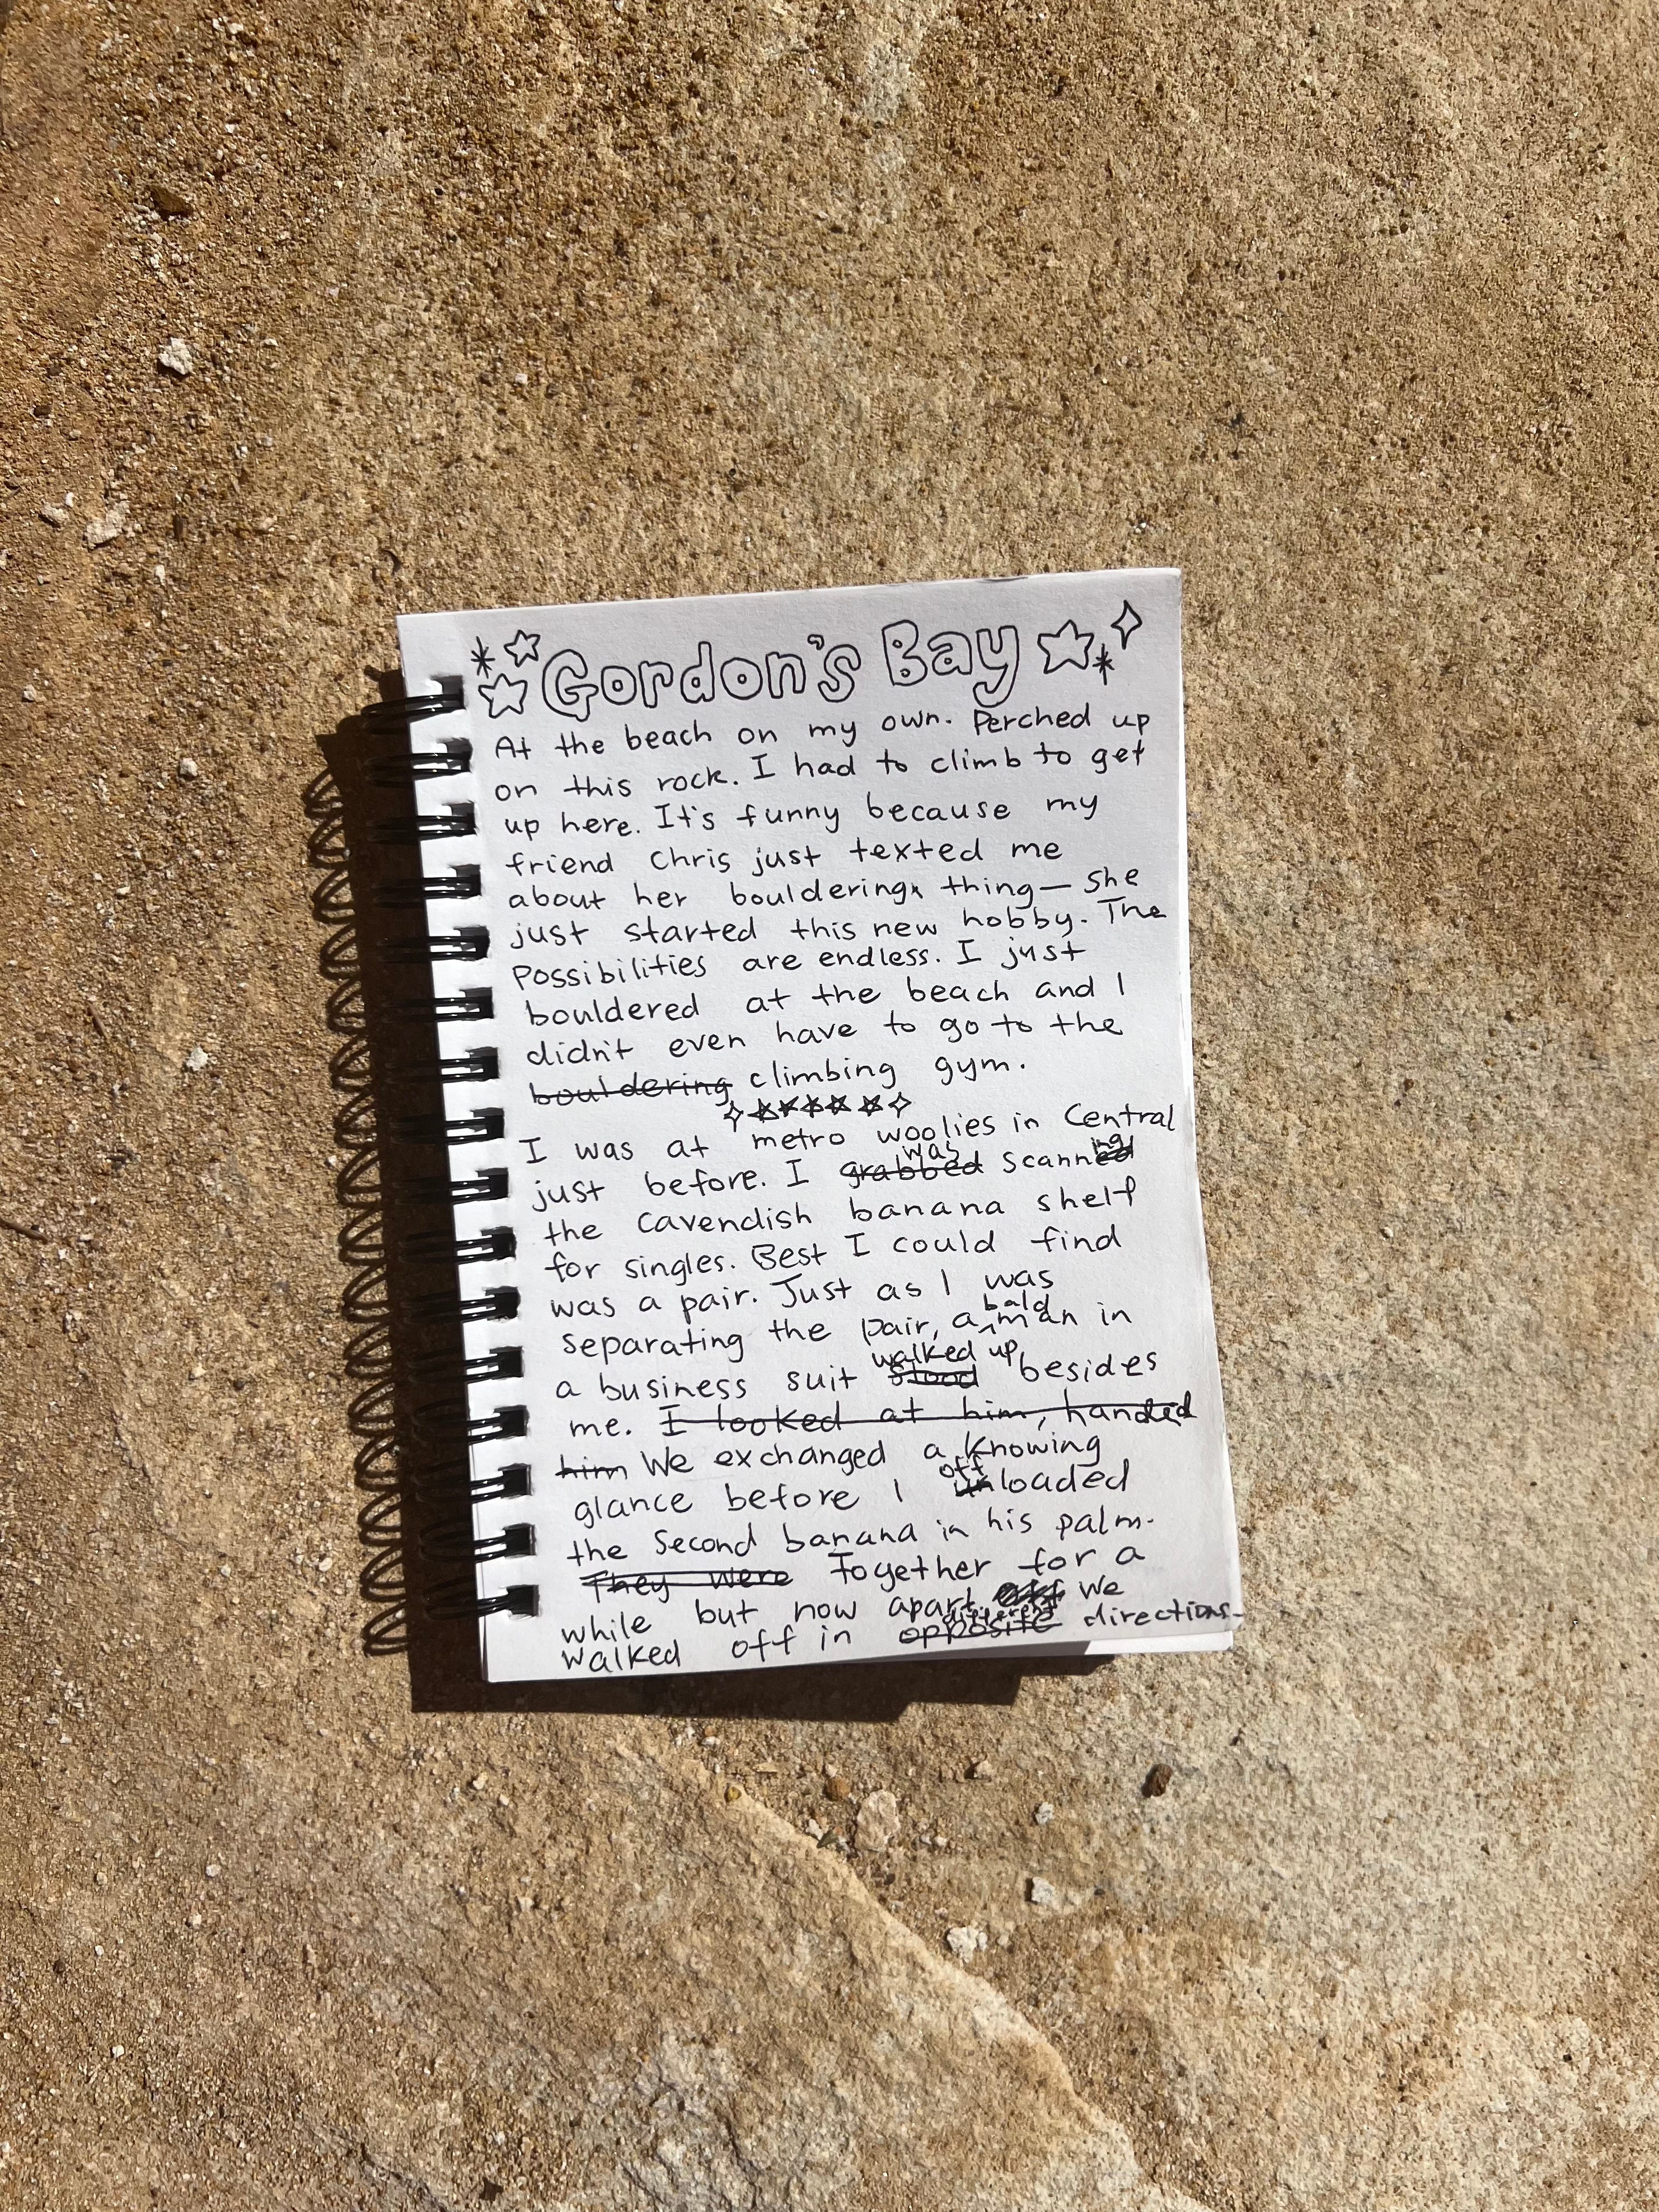 Gordon's Bay
At the beach on my own. Perched up
on this rock. I had to climb to get
up here. It's funny because my
friend Chris just texted me
about her bouldering thing— she
just started this new hobby. The
possibilities are endless. I just
bouldered at the beach and I
didn't even have to go to the
bouldering climbing gym.
I was at metro woolies in Central
just before. I grabbed was scanned ing
the cavendish banana shelf
for singles. Best I could find
was a pair. Just as I was
separating the pair, a bald man in
a business suit stood walked up besides
me. I looked at him, handed
him We exchanged a knowing
glance before I un offloaded
the second banana in his palm.
They were Together for a
while but now apart. We
walked off in opposite different directions.